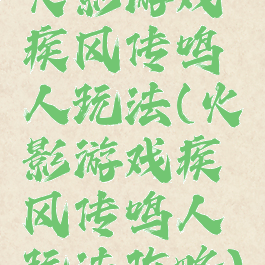 火影游戏
疾风传鸣
人玩法(火
影游戏疾
风传鸣人
玩法攻略)